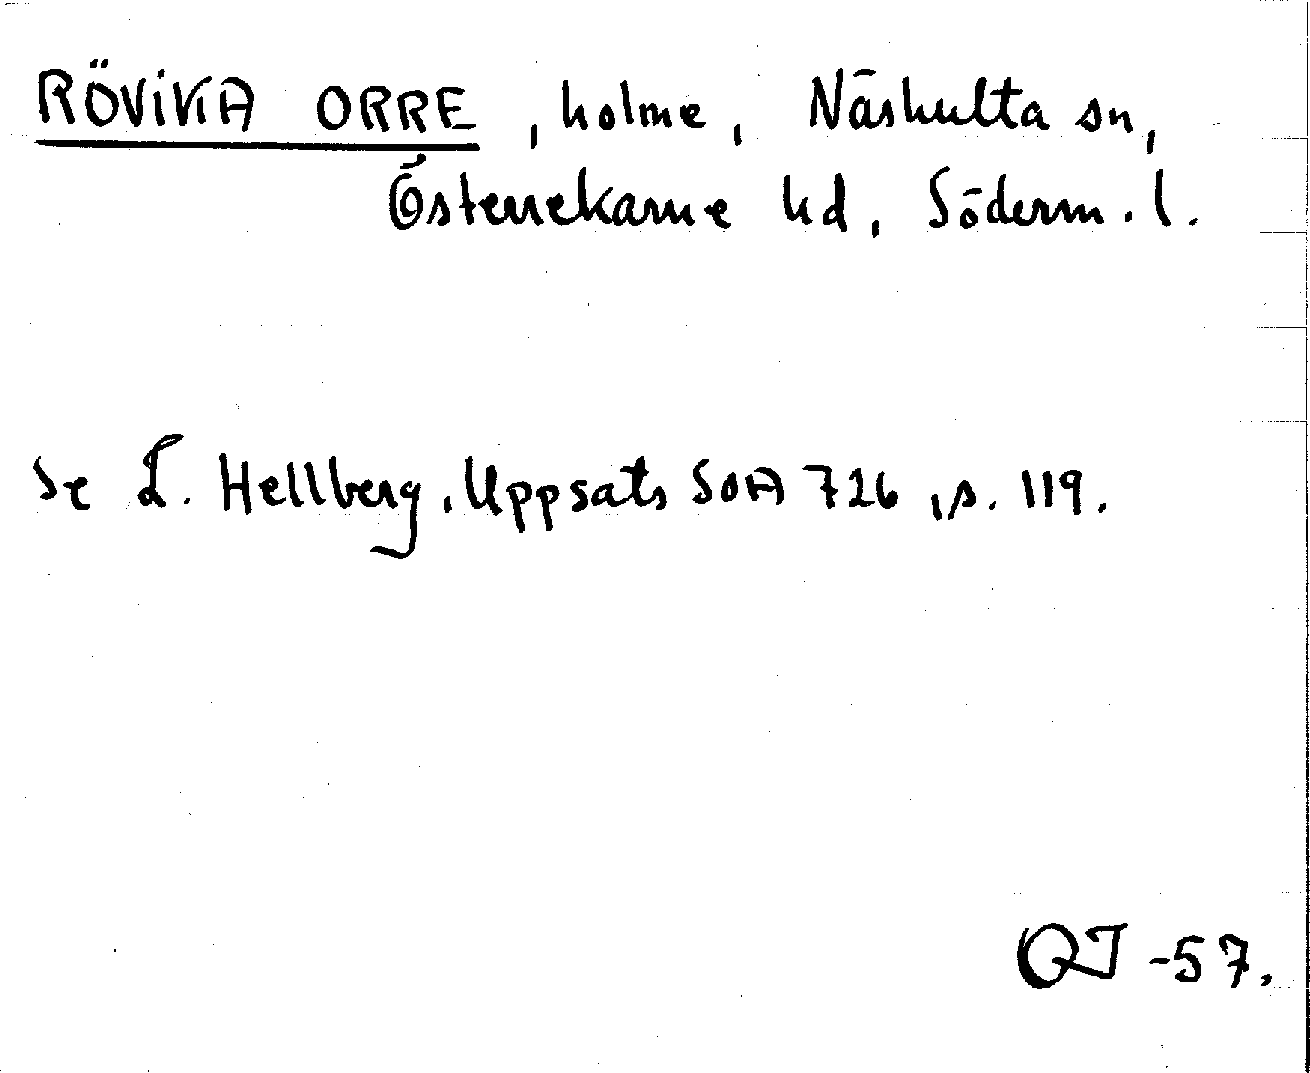 RÖVIKA ORRE, holme, Näshulta sn,
Österrekarne hd, Söderm. l.
Se L. Hellberg, Uppsats SOA 726, s. 119.
QJ -57.